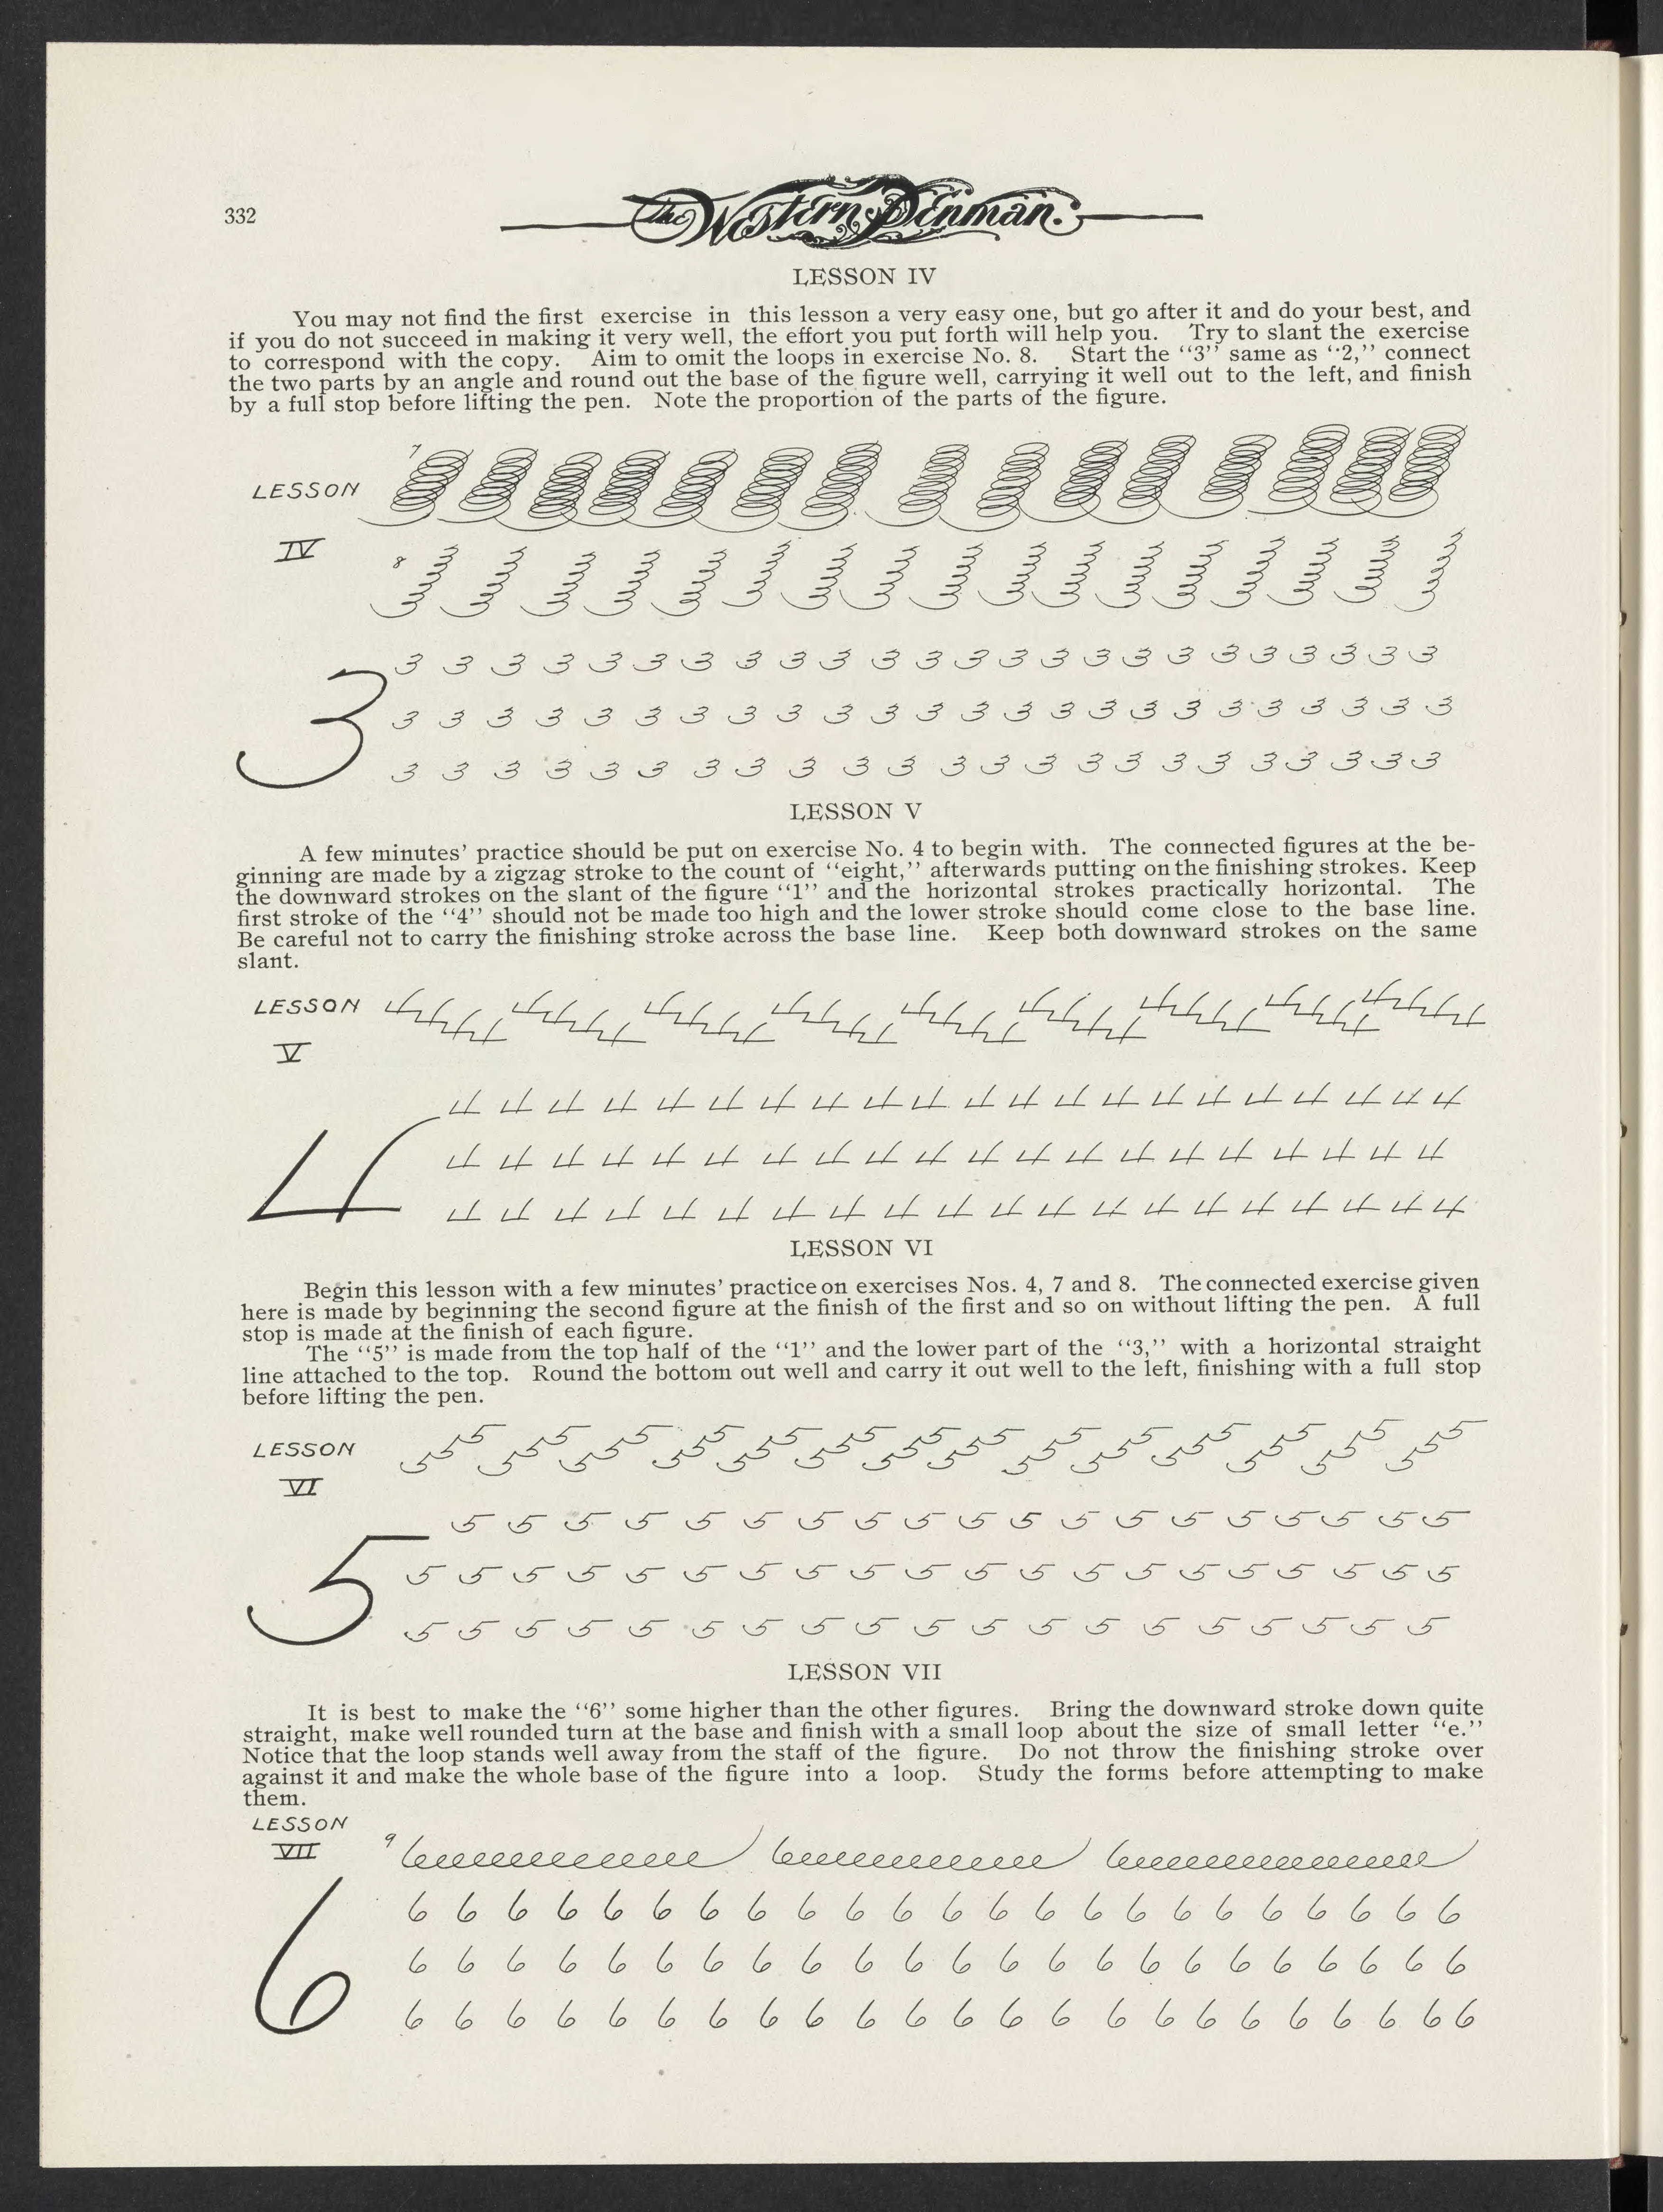 332
The Western Penman.
LESSON IV
You may not find the first exercise in this lesson a very easy one, but go after it and do your best, and
if you do not succeed in making it very well, the effort you put forth will help you. Try to slant the exercise
to correspond with the copy. Aim to omit the loops in exercise No. 8. Start the ‘‘3’’ same as ‘‘2,’’ connect
the two parts by an angle and round out the base of the figure well, carrying it well out to the left, and finish
by a full stop before lifting the pen. Note the proportion of the parts of the figure.
7
LESSON
IV
8
3 3 3 3 3 3 3 3 3 3 3 3 3 3 3 3 3 3 3 3 3 3 3 3
3
3 3 3 3 3 3 3 3 3 3 3 3 3 3 3 3 3 3 3 3 3 3 3 3
3 3 3 3 3 3 3 3 3 3 3 3 3 3 3 3 3 3 3 3 3 3 3
LESSON V
A few minutes’ practice should be put on exercise No. 4 to begin with. The connected figures at the be-
ginning are made by a zigzag stroke to the count of ‘‘eight,’’ afterwards putting on the finishing strokes. Keep
the downward strokes on the slant of the figure ‘‘1’’ and the horizontal strokes practically horizontal. The
first stroke of the ‘‘4’’ should not be made too high and the lower stroke should come close to the base line.
Be careful not to carry the finishing stroke across the base line. Keep both downward strokes on the same
slant.
LESSON
V
4 4 4 4 4 4 4 4 4 4 4 4 4 4 4 4 4 4 4 4 4
4
4 4 4 4 4 4 4 4 4 4 4 4 4 4 4 4 4 4 4 4
4 4 4 4 4 4 4 4 4 4 4 4 4 4 4 4 4 4 4 4
LESSON VI
Begin this lesson with a few minutes’ practice on exercises Nos. 4, 7 and 8. The connected exercise given
here is made by beginning the second figure at the finish of the first and so on without lifting the pen. A full
stop is made at the finish of each figure.
The ‘‘5’’ is made from the top half of the ‘‘1’’ and the lower part of the ‘‘3,’’ with a horizontal straight
line attached to the top. Round the bottom out well and carry it out well to the left, finishing with a full stop
before lifting the pen.
LESSON
VI
5 5 5 5 5 5 5 5 5 5 5 5 5 5 5 5 5 5 5
5
5 5 5 5 5 5 5 5 5 5 5 5 5 5 5 5 5 5 5 5
5 5 5 5 5 5 5 5 5 5 5 5 5 5 5 5 5 5 5
LESSON VII
It is best to make the ‘‘6’’ some higher than the other figures. Bring the downward stroke down quite
straight, make well rounded turn at the base and finish with a small loop about the size of small letter ‘‘e.’’
Notice that the loop stands well away from the staff of the figure. Do not throw the finishing stroke over
against it and make the whole base of the figure into a loop. Study the forms before attempting to make
them.
LESSON
VII
9
6 6 6 6 6 6 6 6 6 6 6 6 6 6 6 6 6 6 6 6 6 6 6
6
6 6 6 6 6 6 6 6 6 6 6 6 6 6 6 6 6 6 6 6 6 6 6
6 6 6 6 6 6 6 6 6 6 6 6 6 6 6 6 6 6 6 6 6 6 6